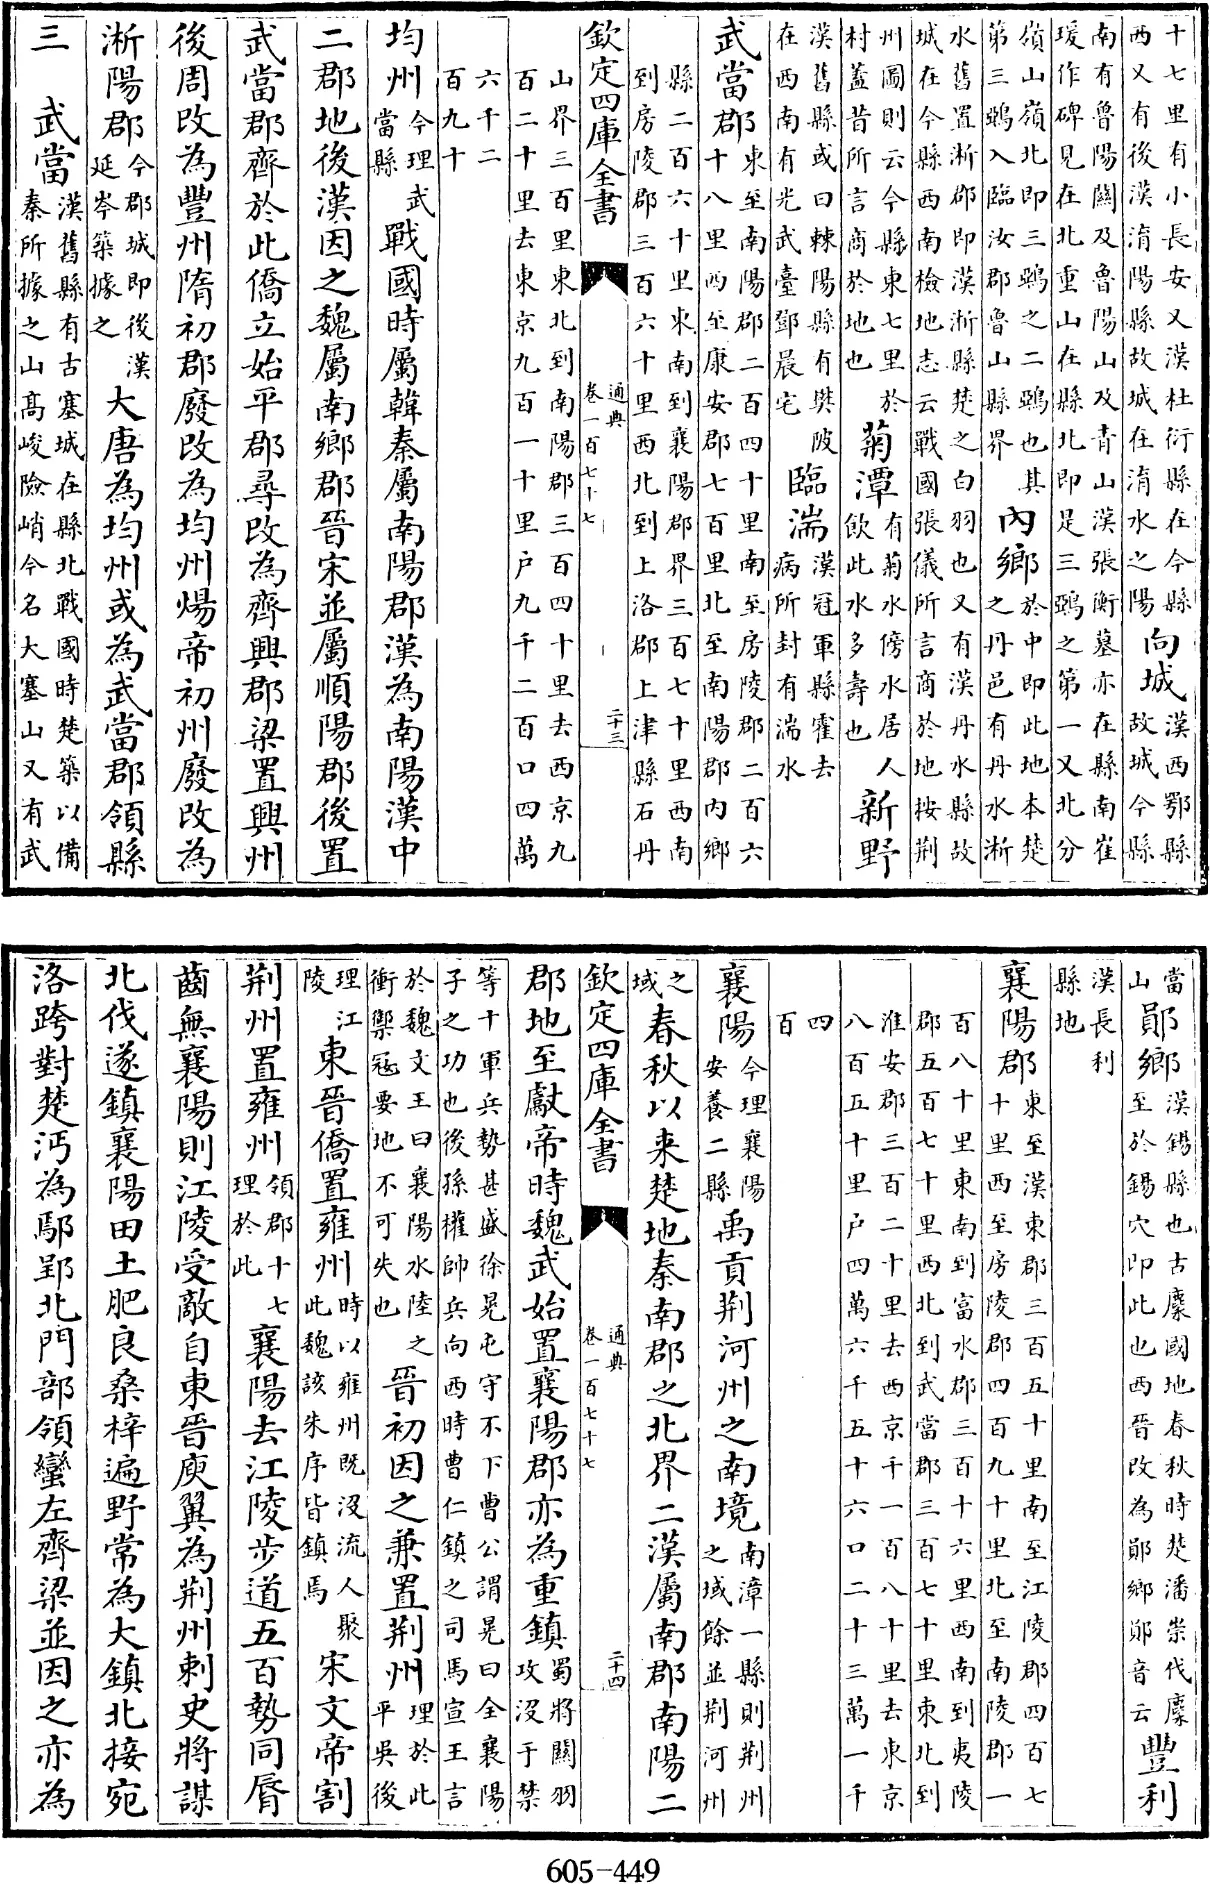 十七里有小長安又漢杜衍縣在今縣西又有後漢淯陽縣故城在淯水之陽向城漢西鄂縣故城今縣
南有魯陽關及魯陽山及青山漢張衡墓亦在縣南崔瑗作碑見在北重山在縣北即是三鵶之第一又北分
嶺山嶺北即三鵶之二鵶也其第三鵶入臨汝郡魯山縣界內鄉於中即此地本楚之丹邑有丹水淅
水舊置淅郡即漢淅縣楚之白羽也又有漢丹水縣故城在今縣西南檢地志云戰國張儀所言商於地按荆
州圖則云今縣東七里於村蓋昔所言商於地也菊潭有菊水傍水居人飲此水多壽也新野
漢舊縣或曰棘陽縣有樊陂在西南有光武臺鄧晨宅臨湍漢冠軍縣霍去病所封有湍水
武當郡東至南陽郡二百四十里南至房陵郡二百六十八里西至康安郡七百里北至南陽郡内鄉
縣二百六十里東南到襄陽郡界三百七十里西南到房陵郡三百六十里西北到上洛郡上津縣石丹
欽定四庫全書 通典卷一百七十七 二十三
山界三百里東北到南陽郡三百四十里去西京九百二十里去東京九百一十里户九千二百口四萬
六千二百九十
均州今理武當縣戰國時屬韓秦屬南陽郡漢為南陽漢中
二郡地後漢因之魏屬南鄉郡晉宋並屬順陽郡後置
武當郡齊於此僑立始平郡尋改為齊興郡梁置興州
後周改為豐州隋初郡廢改為均州煬帝初州廢改為
淅陽郡今郡城即後漢延岑築據之大唐為均州或為武當郡領縣
三 武當漢舊縣有古塞城在縣北戰國時楚築以備秦所據之山高峻險峭今名大塞山又有武
當山鄖鄉漢錫縣也古麇國地春秋時楚潘崇伐麇至於錫穴即此也西晉改為鄖鄉鄖音云豐利
漢長利縣地
襄陽郡東至漢東郡三百五十里南至江陵郡四百七十里西至房陵郡四百九十里北至南陵郡一
百八十里東南到富水郡三百十六里西南到夷陵郡五百七十里西北到武當郡三百七十里東北到
淮安郡三百二十里去西京千一百八十里去東京八百五十里户四萬六千五十六口二十三萬一千
四百
襄陽今理襄陽安養二縣禹貢荆河州之南境南漳一縣則荆州之域餘並荆河州
之域春秋以来楚地秦南郡之北界二漢屬南郡南陽二
欽定四庫全書 通典卷一百七十七 二十四
郡地至獻帝時魏武始置襄陽郡亦為重鎮蜀將關羽攻沒于禁
等十軍兵勢甚盛徐晃屯守不下曹公謂晃曰全襄陽子之功也後孫權帥兵向西時曹仁鎮之司馬宣王言
於魏文王曰襄陽水陸之衝禦冦要地不可失也晉初因之兼置荆州理於此平吳後
理江陵東晉僑置雍州時以雍州既沒流人聚此魏該朱序皆鎮焉宋文帝割
荆州置雍州領郡十七理於此襄陽去江陵步道五百勢同脣
齒無襄陽則江陵受敵自東晉庾翼為荆州刺史將謀
北伐遂鎮襄陽田土肥良桑梓遍野常為大鎮北接宛
洛跨對楚沔為鄢郢北門部領蠻左齊梁並因之亦為
605-449